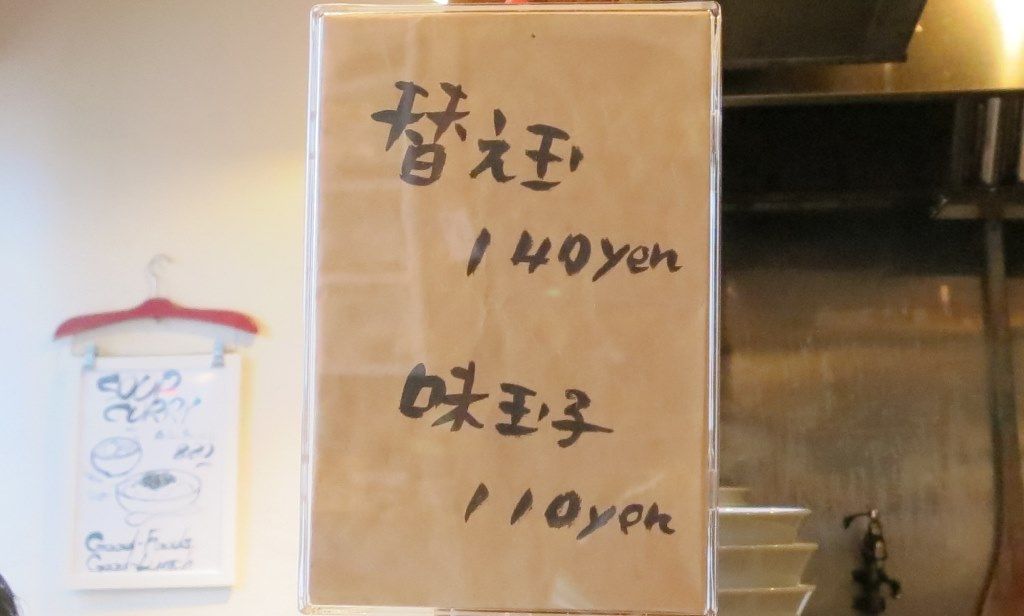 替え玉
140yen
味玉子
110yen
SOUP
CURRY
Good-Foods
Good-